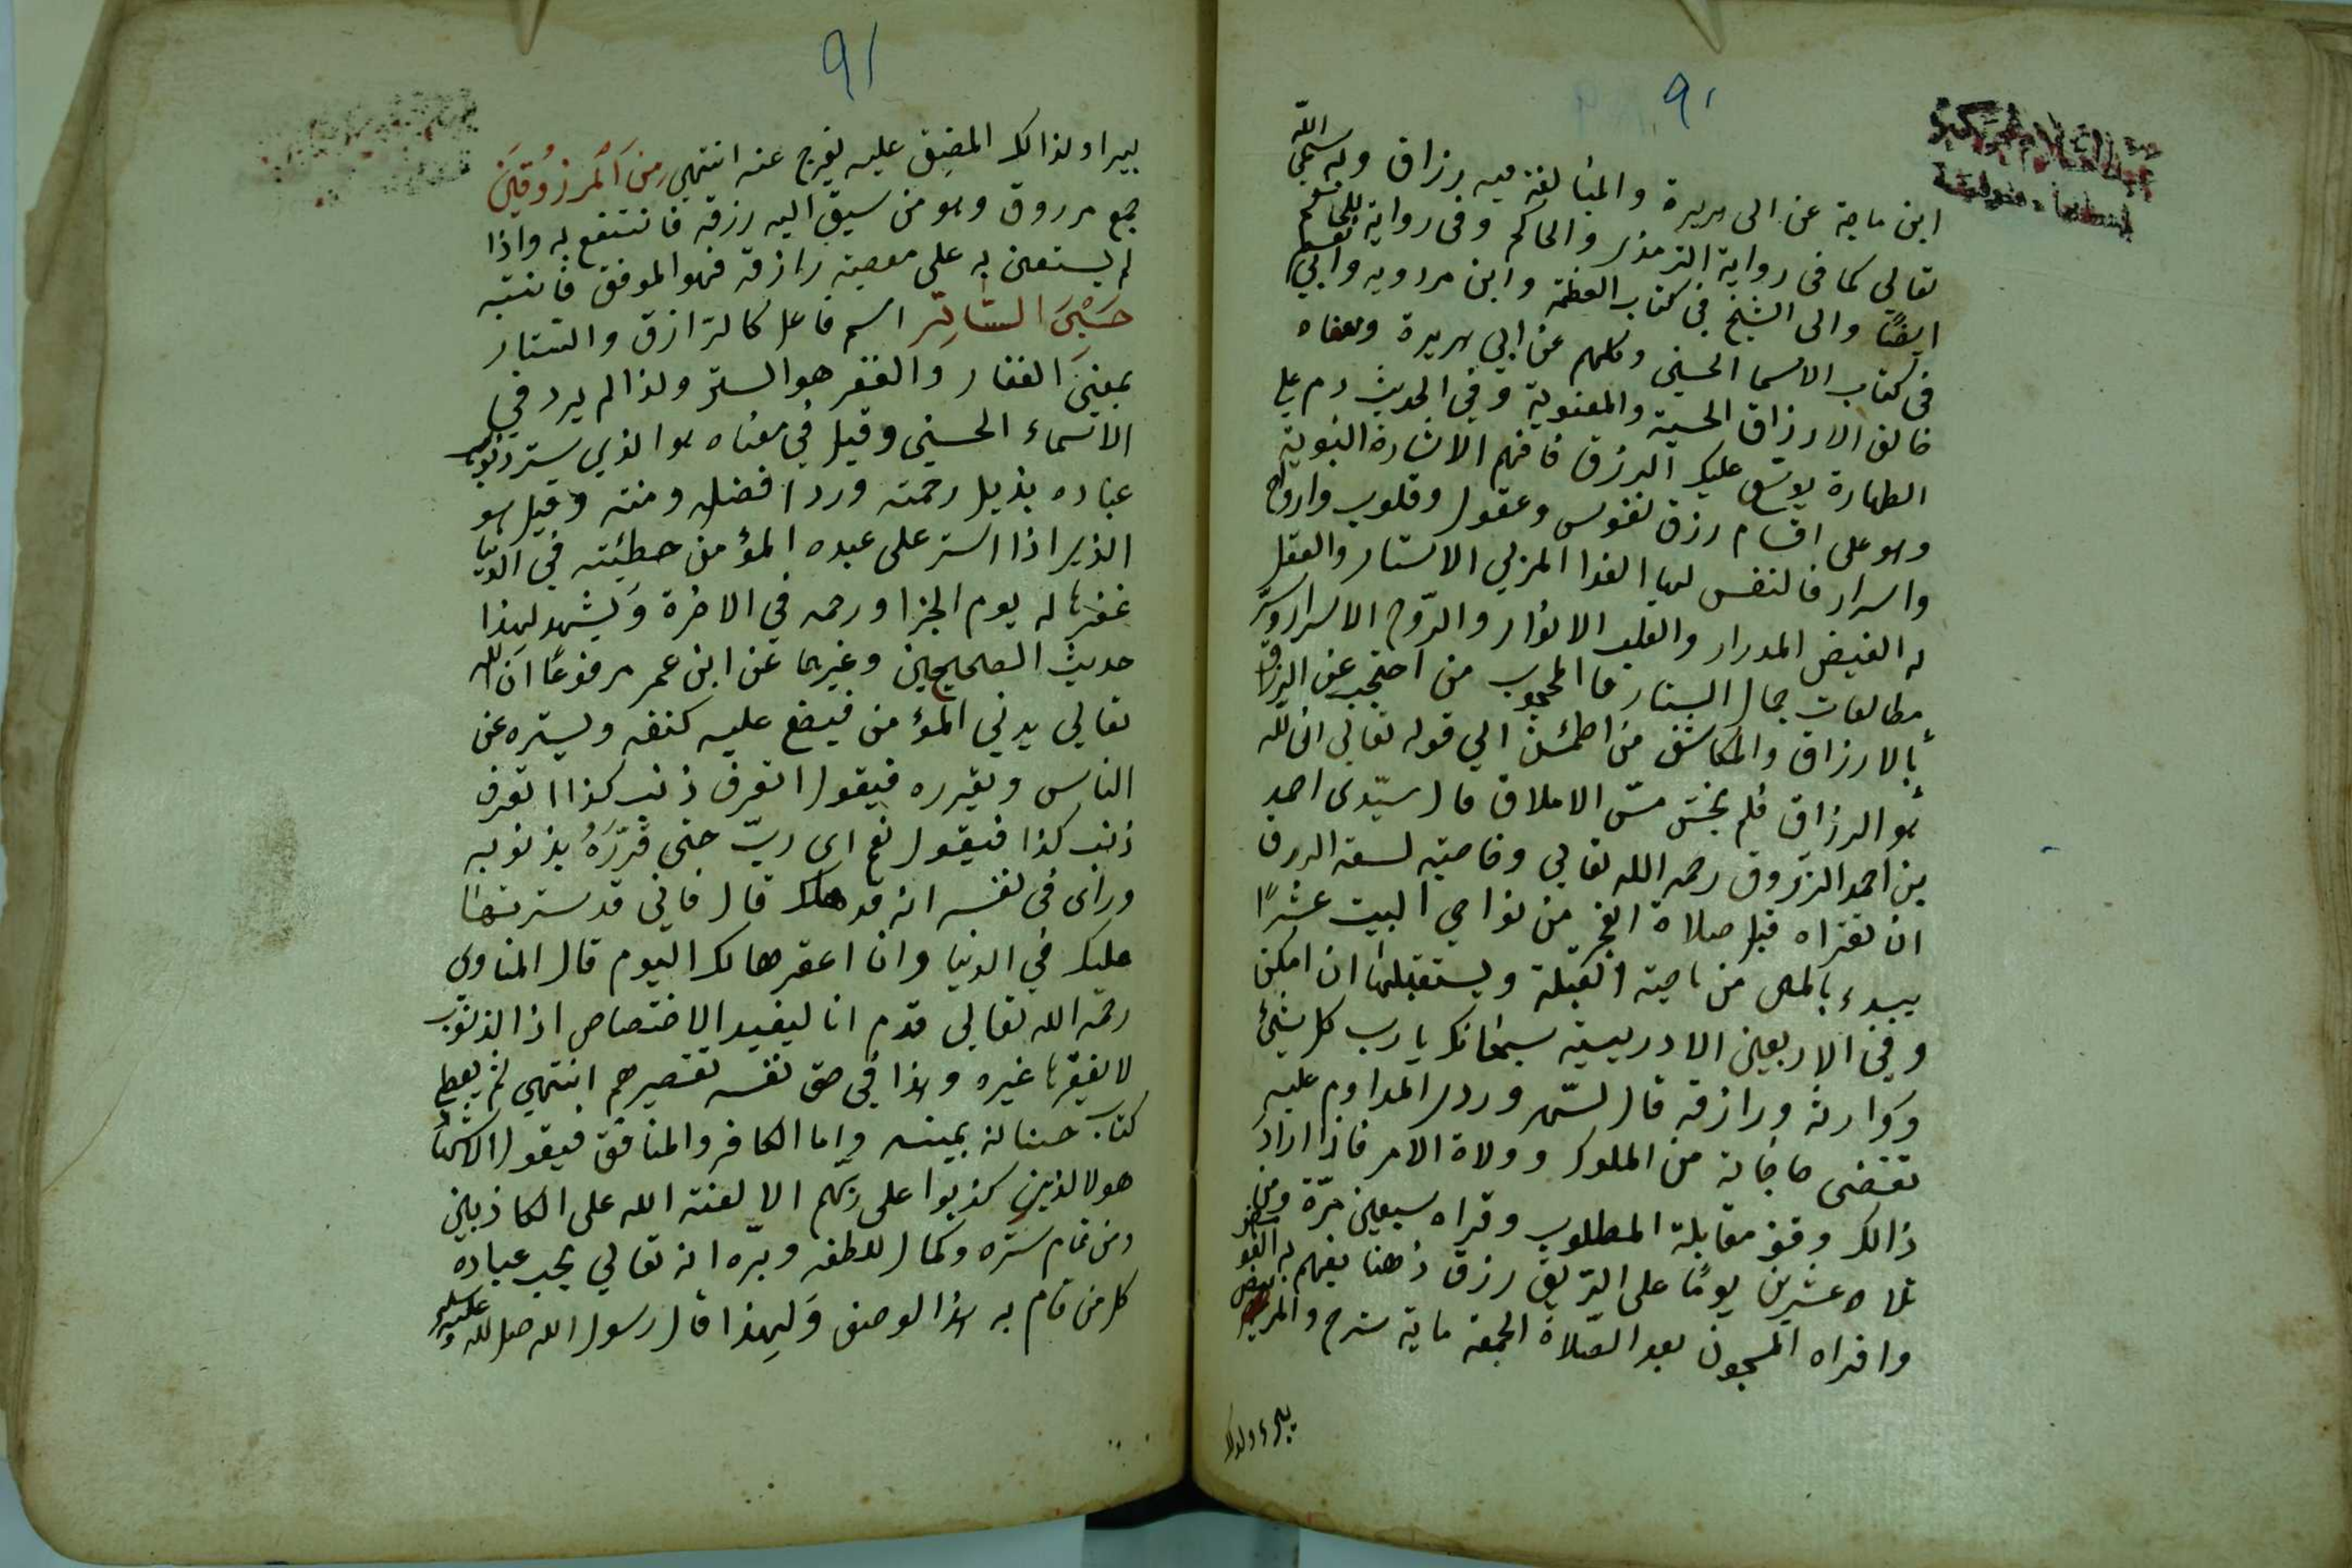 ٩٠
ابن ماجة عن ابى هريرة والمبالغة فيه برزاق وبه سمى الله
تعالي كما فى رواية الترمذى والحاكم وفى رواية للحاكم
ايضًا والى الشيخ فى كتاب العظمة وابن مردويه وابي نعيم
فى كتاب الاسما الحسنى وكلهم عن ابي هريرة ومعناه
خالق الارزاق الحسية والمعنوية وفي الحديث دم على
الطهارة يوسّع عليك الرزق فافهم الاشارة النبوية
وهو على اقسام رزق نفوس وعقول وقلوب وارواح
واسرار فالنفس لها الغذا المزيل الاستار والعقل
له الفيض المدرار والقلب الانوار والرّوح الاسرار وسر
مطالعات جمال الستار فالمحجوب من احتجب عن الرزاق
بالارزاق والمكاشف من اطمئن الي قوله تعالى ان الله
هو الرزاق فلم يخش مسّ الاملاق قال سيّدى احمد
بن احمد الزرّوق رحمه الله تعالي وخاصيته لسعة الرزق
ان تقراه قبل صلاة الفجر من نواحي البيت عشرًا
يبدء باليمين من ناحية القبلة ويستقبلها ان امكن
وفي الاربعين الادريسية سبحانك يارب كل شئ
ووارثه ورازقه قال السهروردى المداوم عليه
تقضى حاجاته من الملوك وولاة الامر فاذا اراد
ذالك وقف مقابلة المطلوب وقراه سبعين مرّة ومن
تلاه عشرين يومًا على الرّيق رزق ذهنا يفهم به الغوامض
واقراه المسجون بعد الصّلاة الجمعة ماية سرح والمريض
يبرء ولذلك
٩١
يبرا ولذالك المضيق عليه يفرج عنه انتهي مِنَ اَلمَرزُوقِينَ
جمع مرزوق وهو من سيق اليه رزقه فانتفع به واذا
لم يستعن به على معصية رازقه فهو الموفق فانتبه
حَسْبِىَ السَّاتِرُ اسم فاعل كالرّازق والستار
بمعنى الغفار والغفر هو الستر ولذا لم يرد في
الاسماء الحسني وقيل في معناه هو الذي ستر ذنوب
عباده بذيل رحمته وردا فضله ومنته وقيل هو
الذى اذا استر على عبده المؤمن خطيئته في الدنيا
غفرها له يوم الجزا ورحمه في الاخرة ويشهد لهذا
حديث الصحيحين وغيرهما عن ابن عمر مرفوعًا ان الله
تعالي يدني المؤمن فيضع عليه كنفه ويستره عن
الناس ويقرره فيقول اتعرف ذنب كذا اتعرف
ذنب كذا فيقول نعم اي ربّ حتى قرّرَهُ بذنوبه
وراى فى نفسه انه قد هلك قال فاني قد سترتها
عليك في الدنيا وانا اغفرها لك اليوم قال المناوي
رحمه الله تعالى قدم انا ليفيد الاختصاص اذ الذنوب
لا يغفرها غيره وهذا في حق نفسه تقصيرهم انتهي ثم يعطى
كتاب حسناته بيمينه واما الكافر والمنافق فيقول الاشهاد
هولا الذين كذبوا على ربّهم الا لعنة الله على الكاذبين
ومن تمام ستره وكمال لطفه وبرّه انه تعالي يحب عباده
كل من قام به هذا الوصف ولهذا قال رسول الله صلى الله عليه وسلم